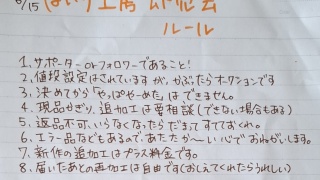 6/15
ルール
1、サポーターorフォロワーであること!
2、値段設定はされていますが、かぶったらオークションです
3、決めてから「やっぱやーめた」はできません。
4、現品かぎり、追加工は要相談(できない場合もある)
5、返品不可。いらなくなったらだまってすてておくれ。
6、エラー品などもあるのであたたか〜い心でおねがいします。
7、新作の追加工はプラス料金です。
8、届いたあとの再加工は自由です(おしえてくれたらうれしい)